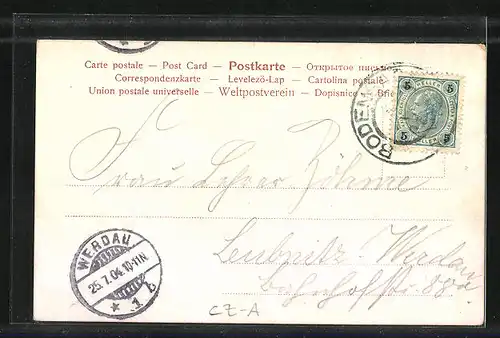 Carte postale — Post Card — Postkarte — Открытое письмо
Correspondenzkarte — Levelező-Lap — Cartolina postale
Union postale universelle — Weltpostverein — Dopisnice — Brie
5 5
5 5
BODEN
Frau Lehrer Böhme
Leubnitz-Werdau
Bahnhofstr. 88
WERDAU
25.7.04.10-11N
* 1 b
CZ-A